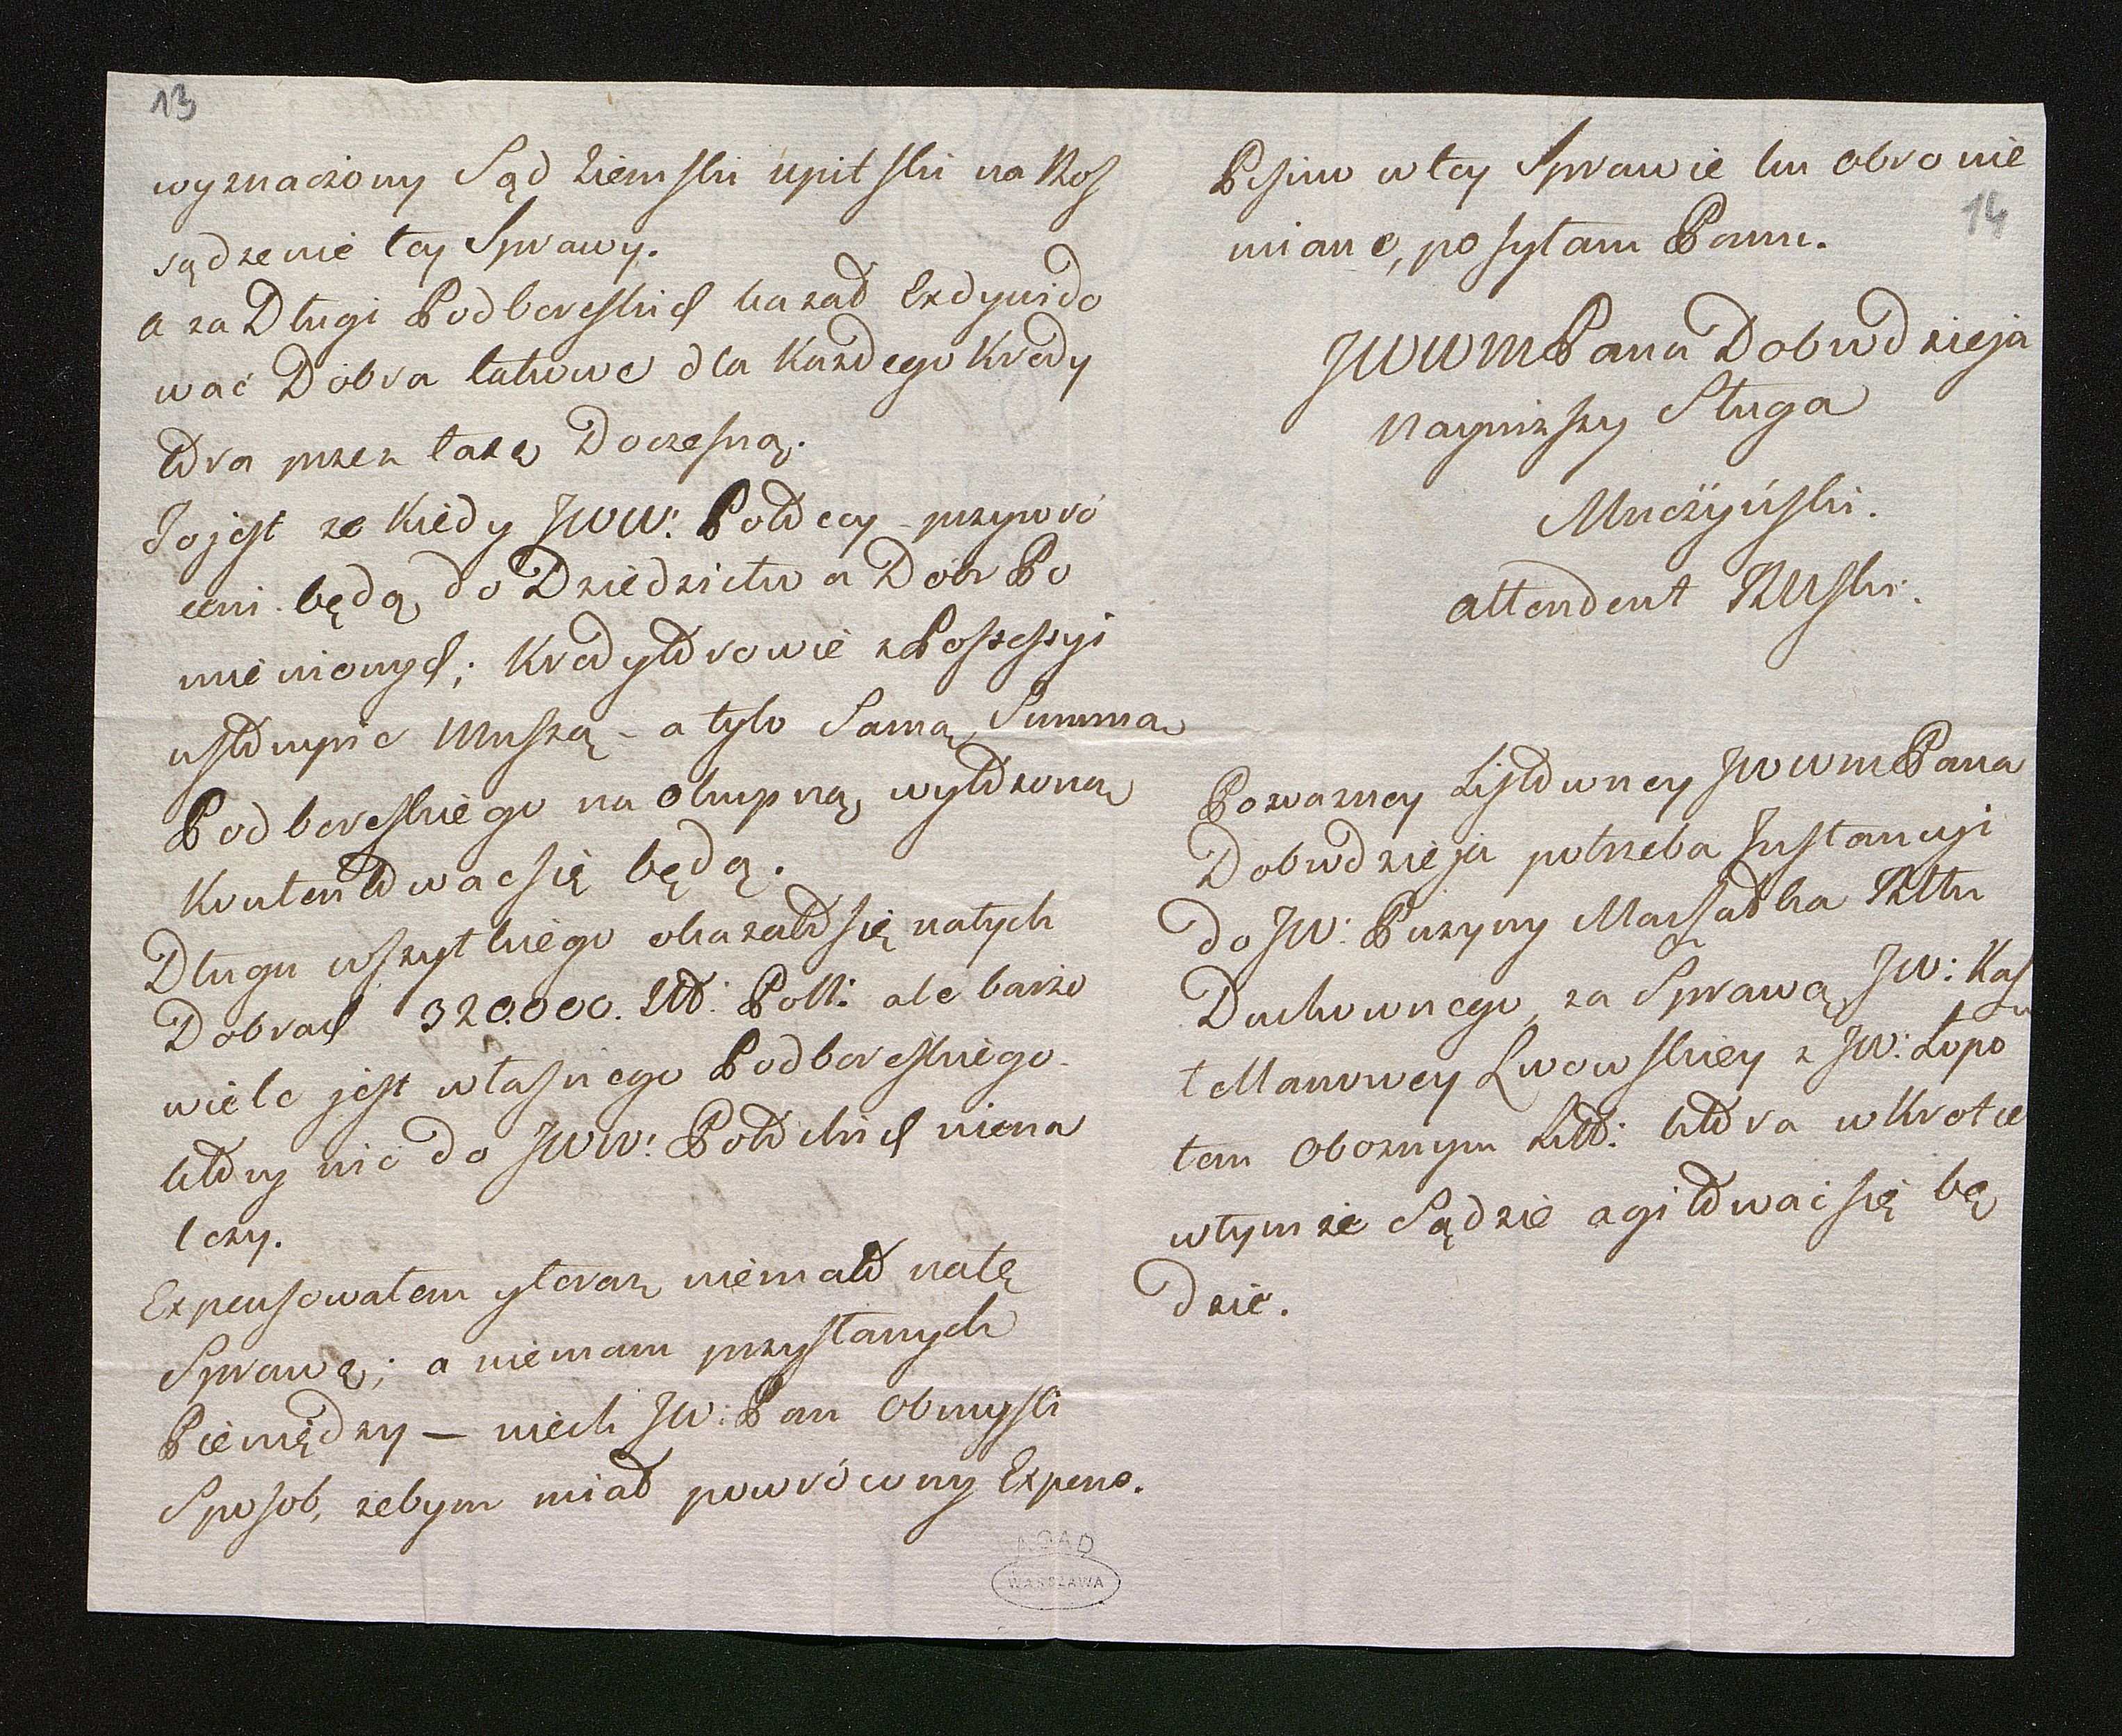 13
wyznaczony Sąd Ziemski upitski na Ros
sądzenie tey Sprawy.
a za Długi Podbereskich kazał Exdywido
wać Dobra takowe dla Każdego Kredy
tora przez taxę Doczesną.
To jest ze Kiedy JWW: Potoccy przywró
ceni będą do Dziedzictwa Dóbr Po
mienionych; Kredytorowie z Possessyi
ustompić Muszą - a tylo Samą Summą
Podbereskiego na okupną wytoczoną
Kontentowac się będą.
Długu wszytkiego okazało się na tych
Dobrach 320.000. Zło: Poll: ale barzo
wiele jest własnego Podbereskiego
ktory nic do JWW: Potockich niena
leży.
Expensowałem y teraz niemało na tę
Sprawę; a niemam przysłanych
Pieniędzy — niech JW: Pan Obmysli
Sposob, zebym miał powrócony Expens.
14
Pisino w tey Sprawie ku obronie
miane, posyłam Panu.
JWWMPana Dobrodzieja
Naynizszy Sługa
Muczÿński.
attendent
Powazney Listowney JWWMPana
Dobrodzieja potrzeba Instancyi
do JW: Puzyny Marszałka
Duchownego, za Sprawą JW: Kasz
tellanowey Lwowskiey z JW: Łopo
tem Oboznym Litto: ktora wKrotce
wtymze Sądzie agitowac się bę
dzie.
AGAD
WARSZAWA